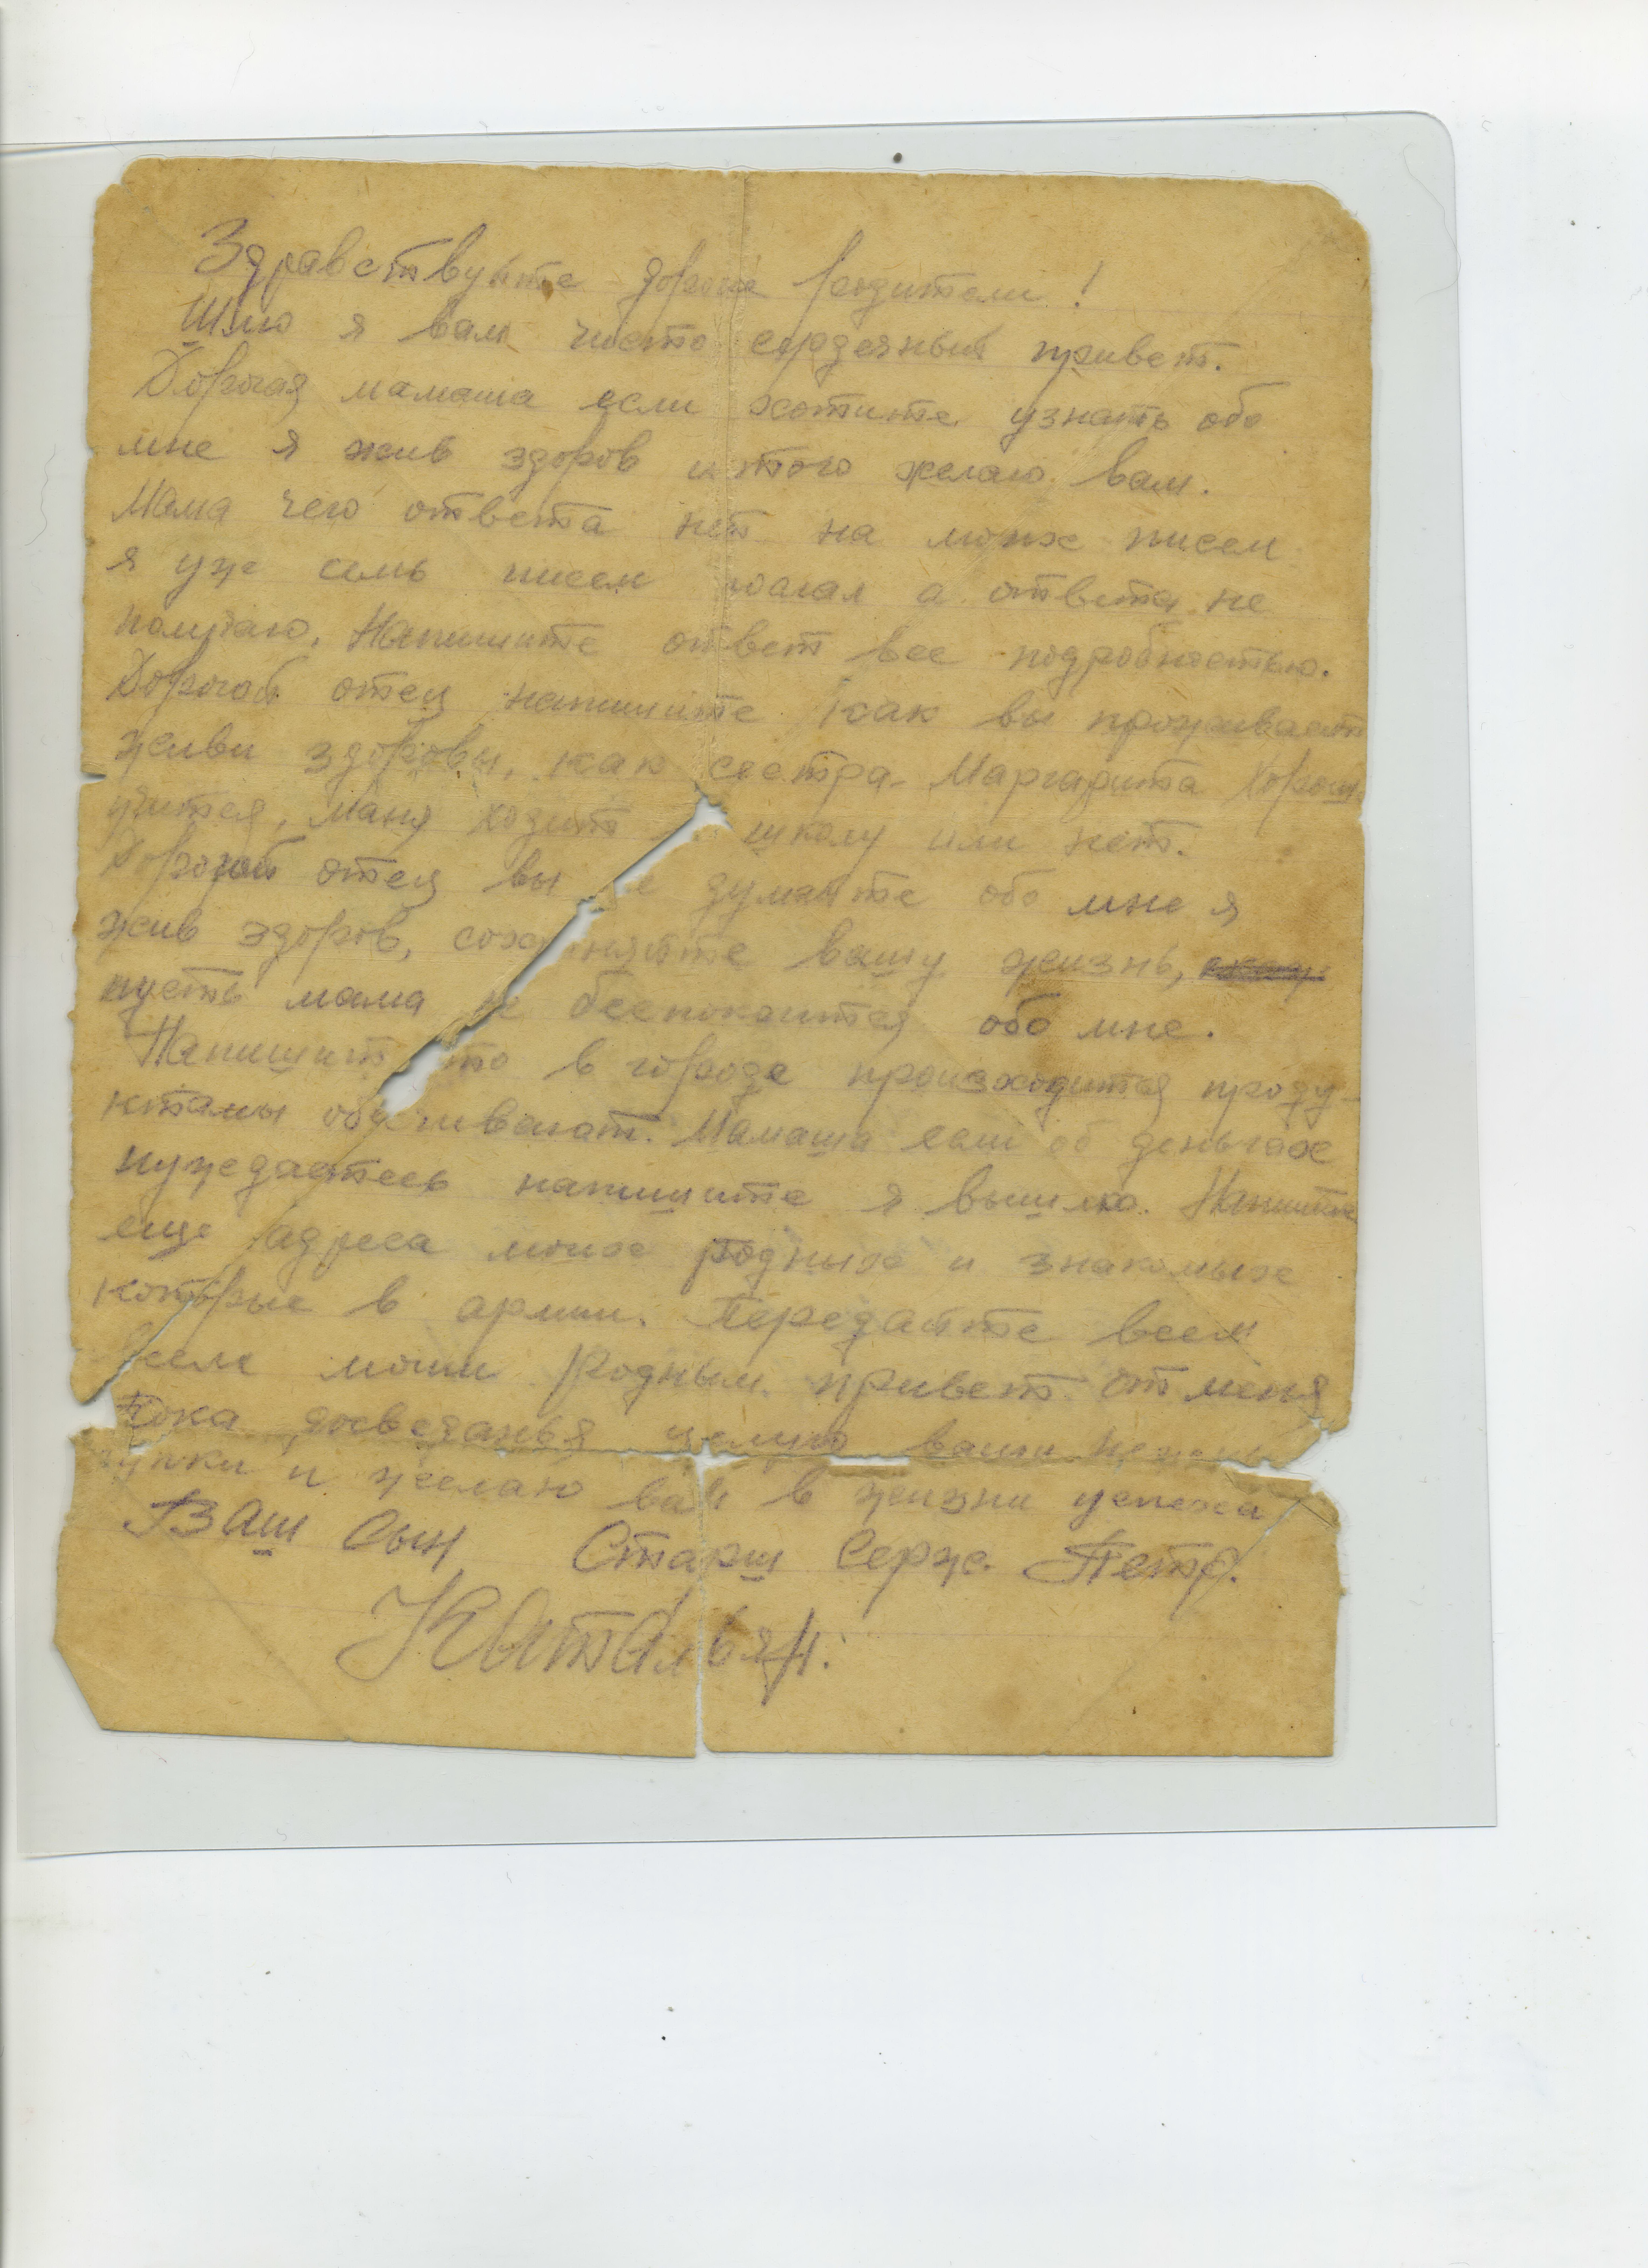 Здравствуйте дорогие родители!
Шлю я вам чисто сердечный привет.
Дорогая мамаша если хотите узнать обо
мне я жив здоров и того желаю вам.
Мама чего ответа нет на моих писем
я уже семь писем послал а ответа не
получаю. Напишите ответ все подробностью.
Дорогой отец напишите как вы проживаете
живи здоровы, как сестра Маргарита хорошо
учится, Маня ходит школу или нет.
Дорогой отец вы не думайте обо мне я
жив здоров, сохраняйте вашу жизнь,
пусть мама не беспокоится обо мне.
Напишит что в городе происходится проду-
ктамы обеспечивают. Мамаша если об деньгах
нуждаетесь напишите я вышлю. Напишите
еще адреса моих родных и знакомых
которые в армии. Передайте всем
всем моим родным привет от меня
Пока досведанья целую ваши нежны
ручки и желаю вам в жизни успеха
Ваш Сын Старш Серж. Петр.